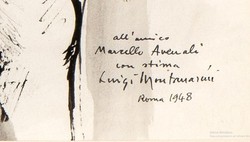 all'amico
Marcello Avenali
con stima
Luigi Montanarini
Roma 1948